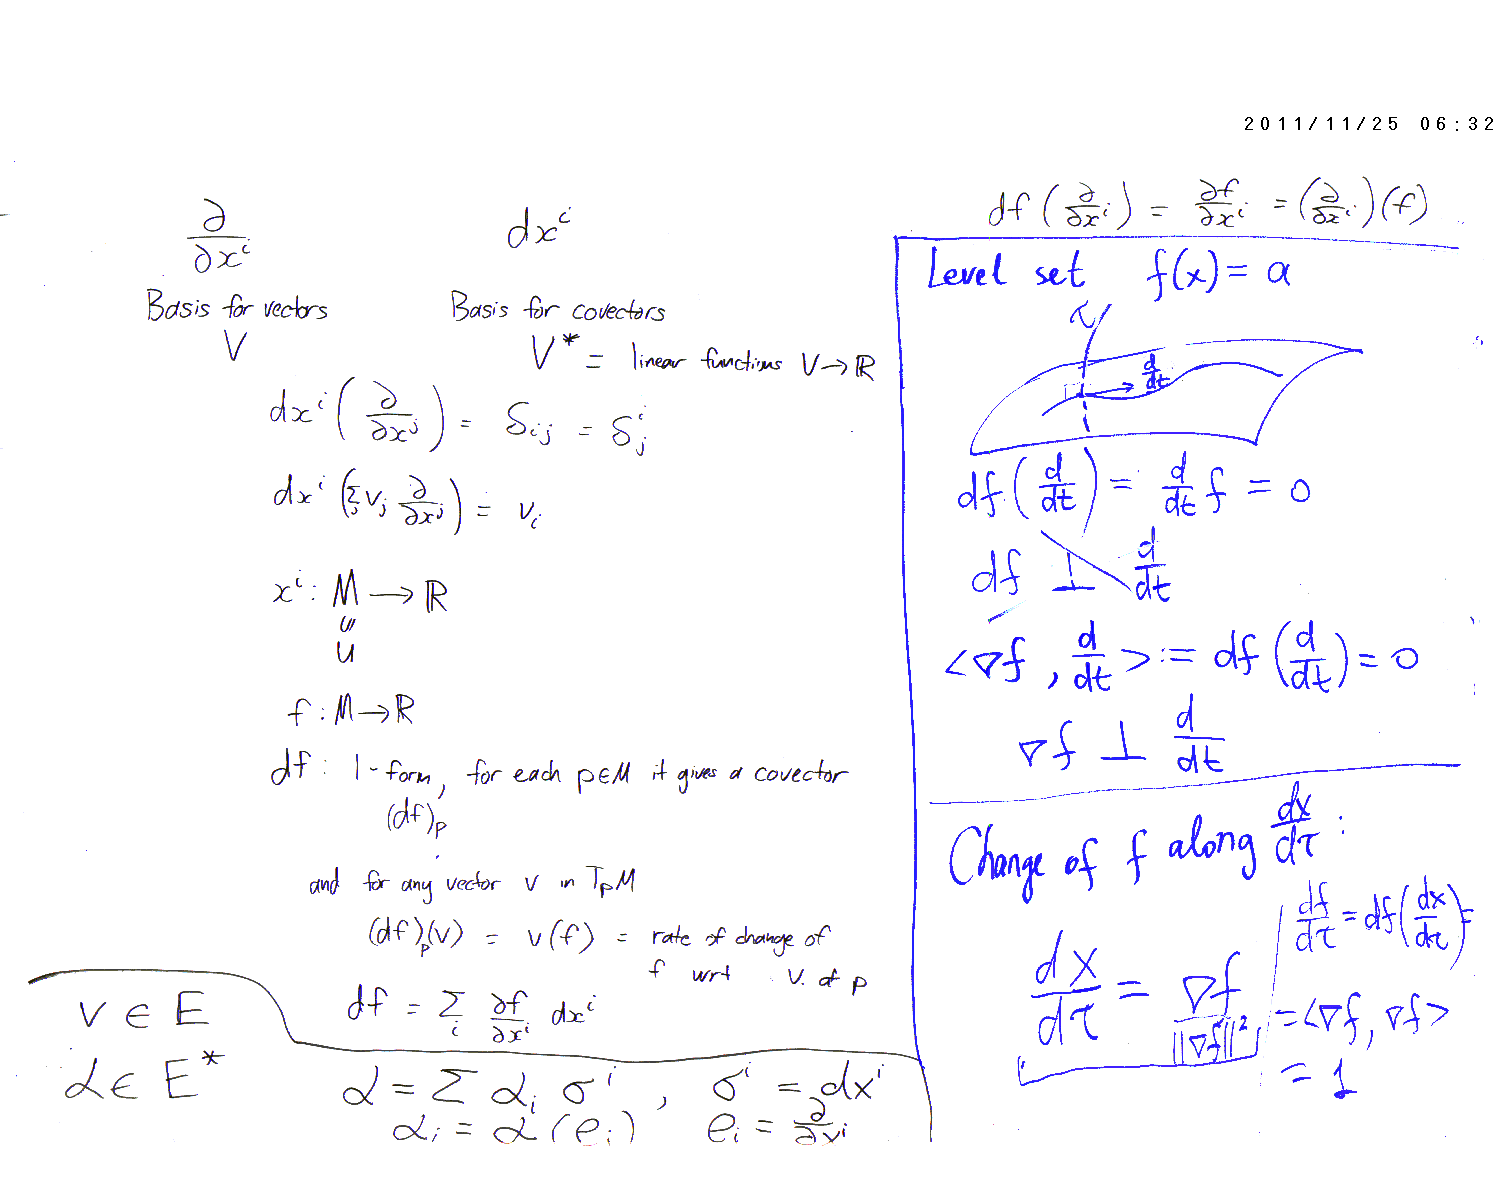 2011/11/25 06:32
∂/∂xⁱ
Basis for vectors
V
dxⁱ
Basis for covectors
V* = linear functions V → ℝ
dxⁱ(∂/∂xʲ) = δᵢⱼ = δⁱⱼ
dxⁱ(Σⱼ vⱼ ∂/∂xʲ) = vᵢ
xⁱ : M → ℝ
U
f : M → ℝ
df : 1-form, for each p∈M it gives a covector
(df)ₚ
and for any vector v in TₚM
(df)ₚ(v) = v(f) = rate of change of
f wrt v at p
df = Σᵢ ∂f/∂xⁱ dxⁱ
v ∈ E
α ∈ E*
α = Σ αᵢ σⁱ , σⁱ = dxⁱ
αᵢ = α(eᵢ) eᵢ = ∂/∂xⁱ
df(∂/∂xⁱ) = ∂f/∂xⁱ = (∂/∂xⁱ)(f)
Level set f(x) = a
τ
d/dt
df(d/dt) = d/dt f = 0
df ⊥ d/dt
<∇f, d/dt> := df(d/dt) = 0
∇f ⊥ d/dt
Change of f along dx/dτ :
dx/dτ = ∇f/||∇f||²
df/dτ = df(dx/dτ) =
= <∇f, ∇f>
= 1